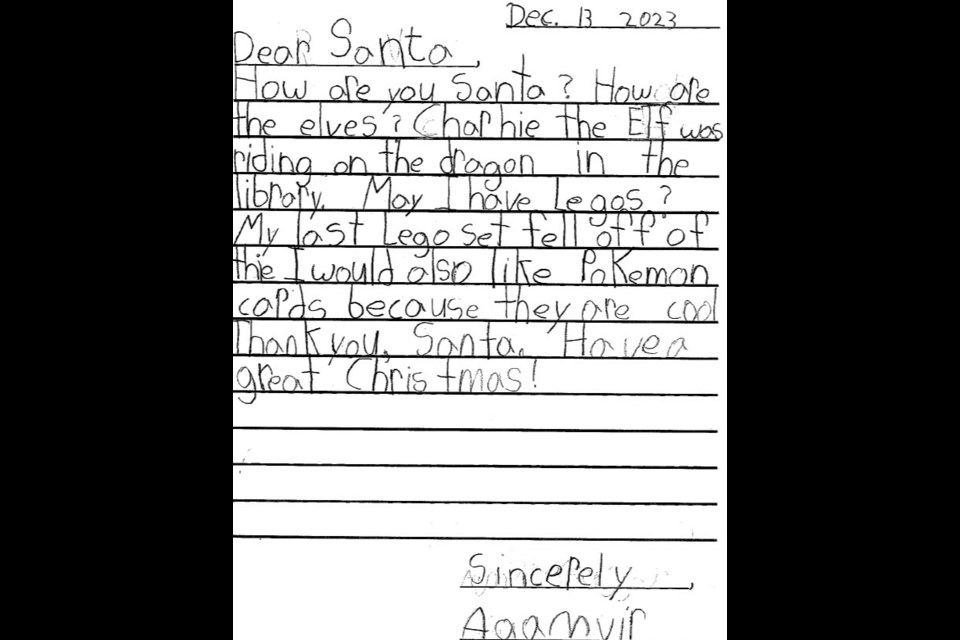 Dec. 13 2023
Dear Santa,
How are you Santa? How are
the elves? Charhie the Elf was
riding on the dragon in the
library. May I have Legos?
My last Lego set fell off of
the I would also like Pokemon
cards because they are cool
Thank you, Santa. Have a
great Christmas!
Sincerely,
Aaamvir